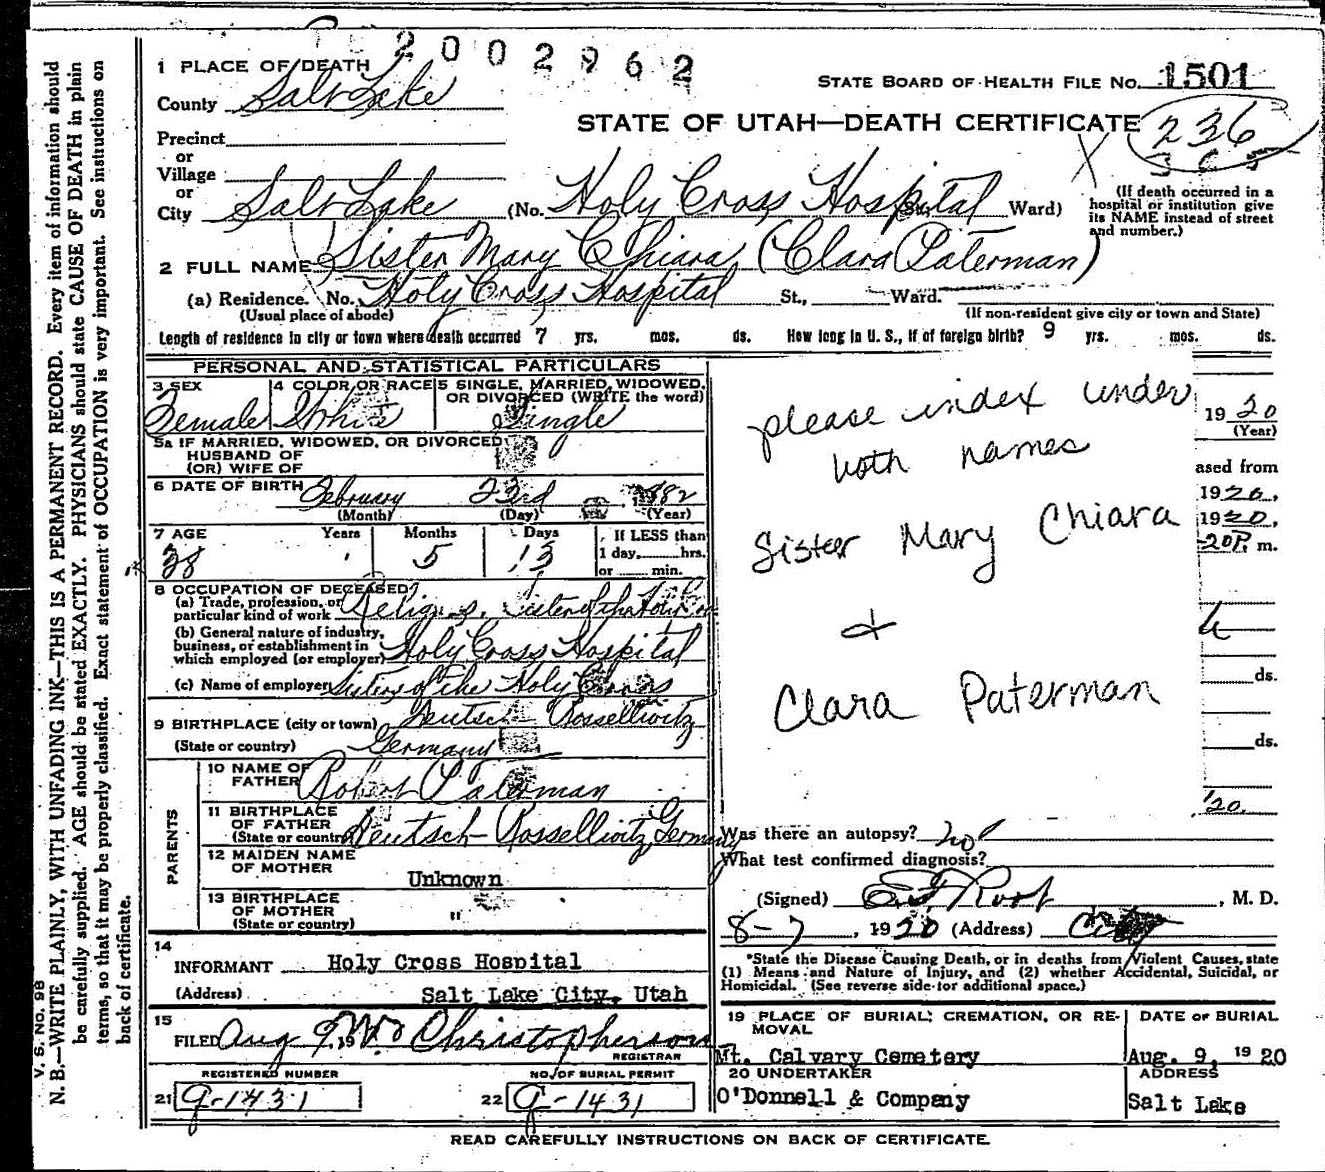 2002962
1 PLACE OF DEATH
STATE BOARD OF HEALTH FILE No. 1501
County Salt Lake
STATE OF UTAH—DEATH CERTIFICATE 236
Precinct
or
Village
or
City Salt Lake (No. Holy Cross Hospital St., Ward)
(If death occurred in a
hospital or institution give
its NAME instead of street
and number.)
2 FULL NAME Sister Mary Chiara (Clara Paterman)
(a) Residence. No. Holy Cross Hospital St., Ward.
(Usual place of abode)
(If non-resident give city or town and State)
Length of residence in city or town where death occurred 7 yrs. mos. ds. How long in U. S., if of foreign birth? 9 yrs. mos. ds.
PERSONAL AND STATISTICAL PARTICULARS
3 SEX
Female
4 COLOR OR RACE
White
5 SINGLE, MARRIED, WIDOWED,
OR DIVORCED (WRITE the word)
Single
5a IF MARRIED, WIDOWED, OR DIVORCED
HUSBAND OF
(OR) WIFE OF
6 DATE OF BIRTH February 23rd 1882
(Month) (Day) (Year)
7 AGE Years Months Days
38 5 13
If LESS than
1 day, hrs.
or min.
8 OCCUPATION OF DECEASED
(a) Trade, profession, or
particular kind of work Religious, Sister of the Holy
(b) General nature of industry,
business, or establishment in
which employed (or employer) Holy Cross Hospital
(c) Name of employer Sisters of the Holy Cross
9 BIRTHPLACE (city or town) Deutsch Rosselliwitz
(State or country) Germany
PARENTS
10 NAME OF
FATHER Robert Paterman
11 BIRTHPLACE
OF FATHER
(State or country) Deutsch-Rosselliwitz Germany
12 MAIDEN NAME
OF MOTHER Unknown
13 BIRTHPLACE
OF MOTHER "
(State or country)
14
INFORMANT Holy Cross Hospital
(Address) Salt Lake City, Utah
15
FILED Aug 9, 19 Christopherson
REGISTRAR
REGISTERED NUMBER
21 G-1431
NO. OF BURIAL PERMIT
22 G-1431
please index under
both names
Sister Mary Chiara
&
Clara Paterman
1920
(Year)
ased from
1920,
1920,
20P. m.
ds.
ds.
'20.
Was there an autopsy? no
What test confirmed diagnosis?
(Signed) E. F. Root, M. D.
8-7, 1920 (Address) City
*State the Disease Causing Death, or in deaths from Violent Causes, state
(1) Means and Nature of Injury, and (2) whether Accidental, Suicidal, or
Homicidal. (See reverse side for additional space.)
19 PLACE OF BURIAL, CREMATION, OR RE-
MOVAL
Mt. Calvary Cemetery
DATE OF BURIAL
Aug. 9, 1920
20 UNDERTAKER
O'Donnell & Company
ADDRESS
Salt Lake
READ CAREFULLY INSTRUCTIONS ON BACK OF CERTIFICATE
V. S. NO. 98
N. B.—WRITE PLAINLY, WITH UNFADING INK—THIS IS A PERMANENT RECORD. Every item of information should
be carefully supplied. AGE should be stated EXACTLY. PHYSICIANS should state CAUSE OF DEATH in plain
terms, so that it may be properly classified. Exact statement of OCCUPATION is very important. See instructions on
back of certificate.